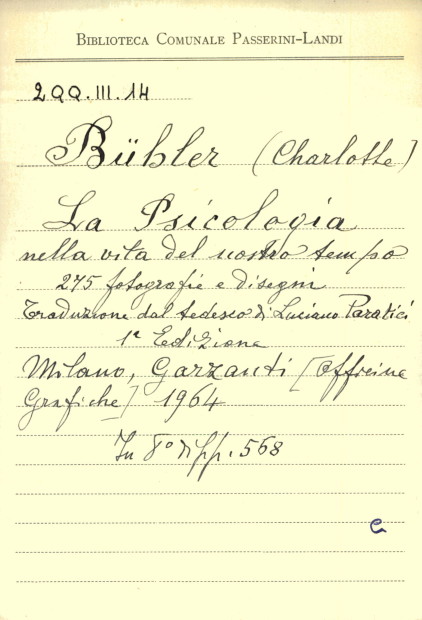 BIBLIOTECA COMUNALE PASSERINI-LANDI
2QQ.III.14
Bühler (Charlotte)
La Psicologia
nella vita del nostro tempo
275 fotografie e disegni
Traduzione dal tedesco di Luciano Paratici
1ª Edizione
Milano, Garzanti [Officine
Grafiche] 1964
In 8° di pp. 568
e